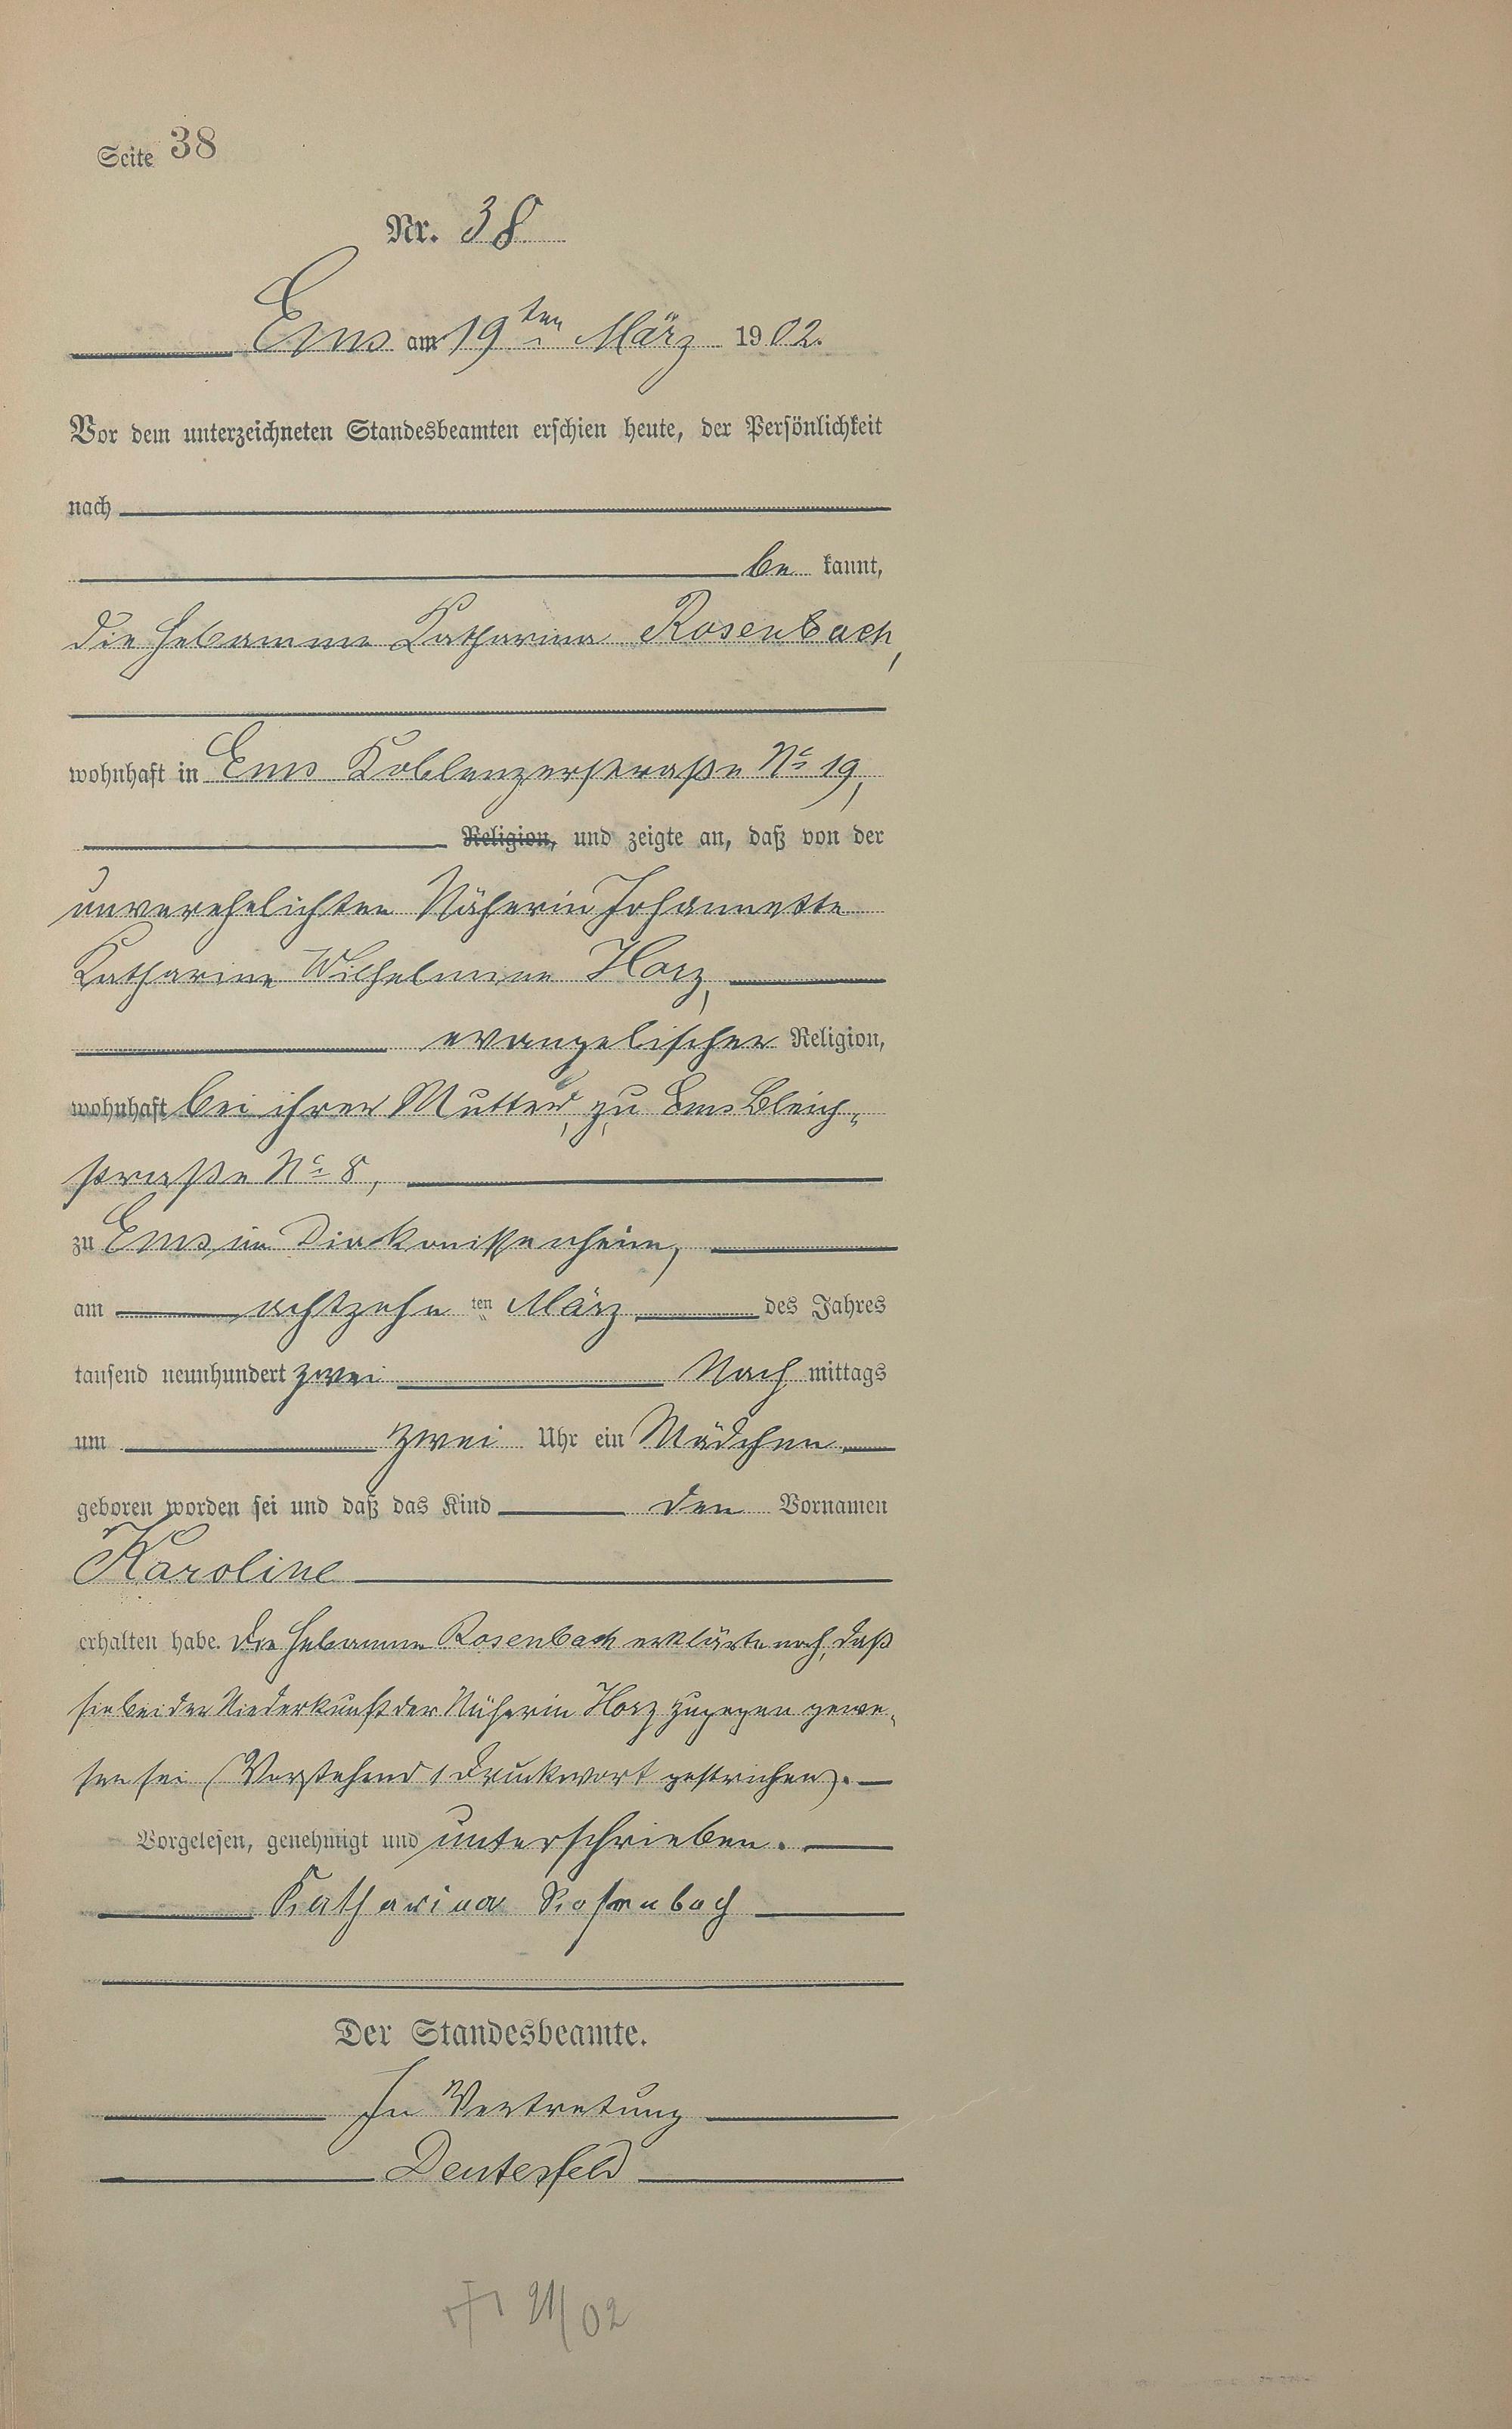 Seite 38
Nr. 38
Ems am 19ten März 1902.
Vor dem unterzeichneten Standesbeamten erschien heute, der Persönlichkeit
nach
be kannt,
die Hebamme Katharina Rosenbach,
wohnhaft in Ems Koblenzerstraße No 19,
Religion, und zeigte an, daß von der
unverehelichten Näherin Johannette
Katharine Wilhelmine Horz,
evangelischer Religion,
wohnhaft bei ihrer Mutter, zu Ems Bleich-
straße No 8,
zu Ems, im Diakonissenheim,
am achtzehn ten März des Jahres
tausend neunhundert zwei Nach mittags
um zwei Uhr ein Mädchen
geboren worden sei und daß das Kind den Vornamen
Karoline
erhalten habe. Die Hebamme Rosenbach erklärte noch, daß
sie bei der Niederkunft der Näherin Horz zugegen gewe-
sen sei (Vorstehend 1 Druckwort gestrichen).
Vorgelesen, genehmigt und unterschrieben.
Katharina Rosenbach
Der Standesbeamte.
In Vertretung
Deutesfeld
21/02